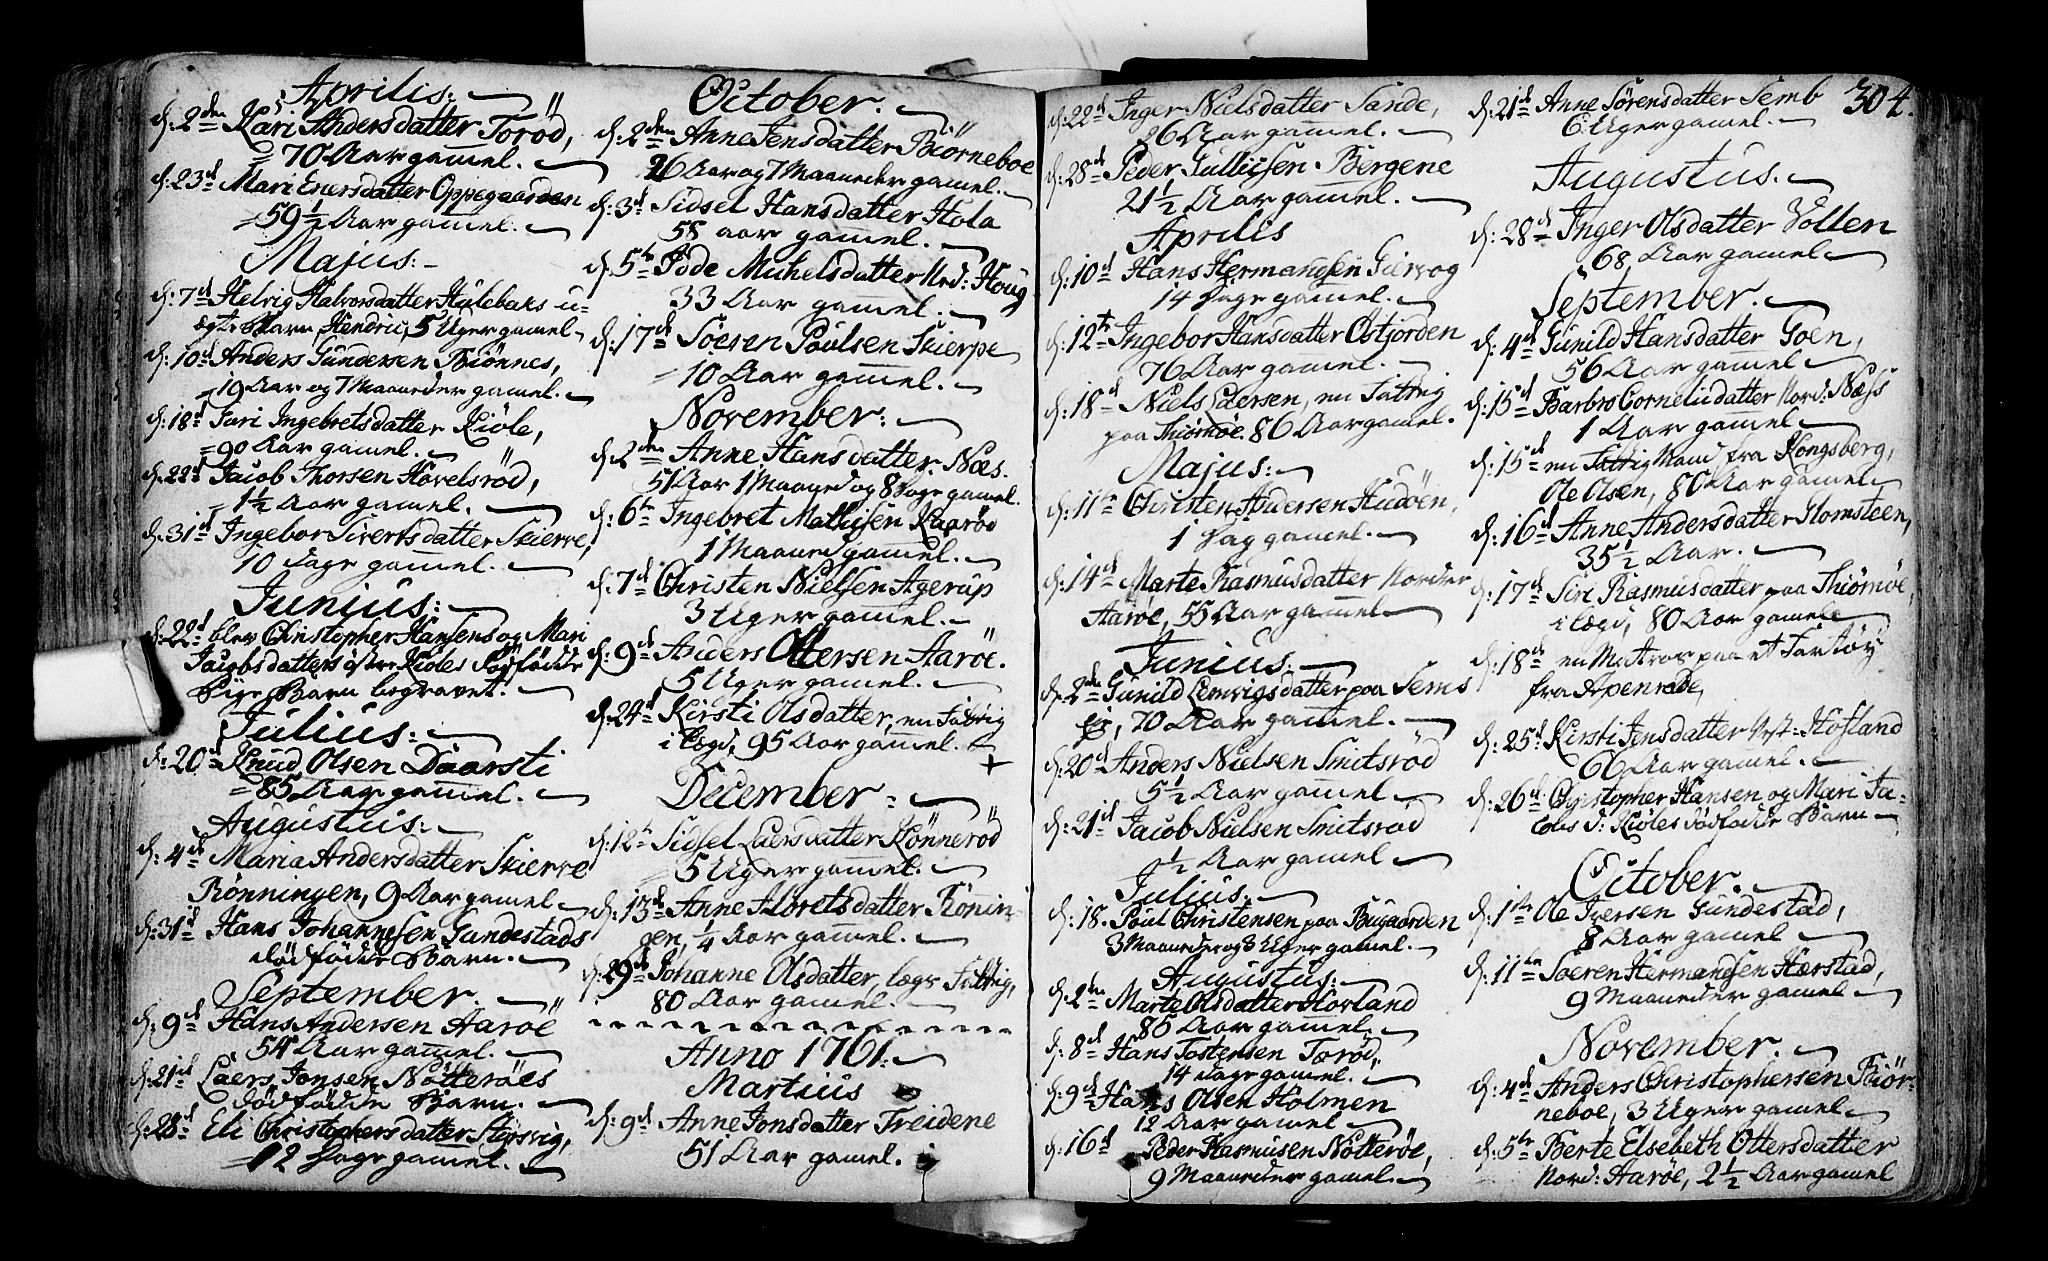 Aprilis:
d: 2den Kari Andersdatter Torød,
70 Aar gamel.
d: 23d Mari Enersdatter Oppegaarden
59 1/2 Aar gamel.
Majus:
d: 7d Helvig Halvorsdatter Hylebaks u-
ægte Barn, Hendric, 5 Uger gamel
d: 10d Anders Gundersen Biönnes,
19 Aar og 7 Maaneder gamel.
d: 18d Siri Ingebretsdatter Kiöle,
90 Aar gamel.
d: 22d Jacob Thorsen Hovelsröd,
1 1/2 Aar gamel.
d: 31d Ingebor Sivertsdatter Skierve,
10 dage gamel.
Junius:
d: 22d blev Christopher Hansens og Mari
Jacobsdatters öster Kioles dödfödde
Pige Barn begravet.
Julius:
d: 20d Knud Olsen Daarsti
85 Aar gamel.
Augustus:
d: 4d Maria Andersdatter Skierve
Rönningen, 9 Aar gamel
d: 31d Hans Johannesen Gundestads
dödfödde Barn.
September.
d: 9d Hans Andersen Aaröe
54 Aar gamel.
d: 21d Laers Jonsen Nötteröes
dödfödde Barn.
d: 28d Eli Christophersdatter Stjersvig,
12 dage gamel.
October.
d: 2den Anne Jensdatter Biörneboe
26 Aar og 7 Maaneder gamel.
d: 3d Sidsel Hansdatter Hola
58 aar gamel.
d: 5te Iode Michelsdatter Ned: Houg
33 Aar gamel.
d: 17d Soeren Poulsen Skierpe
10 Aar gamel.
November:
d: 2den Anne Hansdatter Næs.
51 Aar 1 Maaned og 8 dage gamel.
d: 6te Ingebret Mathisen Kaaröd
1 Maaned gamel.
d: 7d Christen Nielsen Agerup
3 Uger gamel.
d: 9d Anders Ottersen Aaröe.
5 Uger gamel.
d: 24d Kirsti Olsdatter, en fattig
i lægd, 95 Aar gamel.
December:
d: 12te Sidsel Laersdatter Könneröd
5 Uger gamel.
d: 13d Anne Floretsdatter Rönin-
gen, 1/4 Aar gamel.
d: 29d Johanne Olsdatter, lægs fattig,
80 Aar gamel.
Anno 1761.
Martius
d: 9d Anne Jonsdatter Freidene
51 Aar gamel.
d: 22d Inger Nielsdatter Sande,
26 Aar gamel.
d: 28d Peder Gullicsen Bergene
21 1/2 Aar gamel.
Aprilis
d: 10d Hans Hermansen Giervog
14 dage gamel.
d: 12te Ingebor Hansdatter Østjorden
76 Aar gamel.
d: 18d Niels Laersen, en fattig
paa Thiömöe. 86 Aar gamel.
Majus:
d: 11te Christen Andersen Hudöen,
1 dag gamel.
d: 14d Marte Rasmusdatter Norder
Aaröe, 55 Aar gamel
Junius:
d: 2den Gunild Lemvigsdatter paa Sems
Ej, 70 Aar gamel.
d: 20d Anders Nielsen Smitsröd
5 1/2 Aar gamel
d: 21d Jacob Nielsen Smitsröd
1/2 Aar gamel
Julius.
d: 18. Poul Christensen paa Bugaarden
3 Maaneder og 3 Uger gamel.
Augustus:
d: 2den Marte Olsdatter Hovland
85 Aar gamel.
d: 8d Hans Tostensen Toröd,
14 dage gamel.
d: 9d Hans Olsen Holmen
12 Aar gamel
d: 16d Peder Rasmusen Nötteröe,
9 Maaneder gamel.
304.
d: 21d Anne Sörensdatter Semb
6 Uger gamel.
Augustus.
d: 28d Inger Olsdatter Vollen
68 Aar gamel
September.
d: 4d Gunild Hansdatter Goen,
56 Aar gamel
d: 15d Barbro Cornelidatter Nord: Næss
1 Aar gamel
d: 15d en fattig Mand fra Kongsberg,
Ole Olsen, 80 Aar gamel
d: 16d Anne Andersdatter Glomsteen,
35 1/2 Aar.
d: 17d Siri Rasmusdatter paa Thiömöe,
i lægd, 80 Aar gamel
d: 18d en Matros paa et Fartöy
fra Apenrade,
d: 25d Kirsti Jensdatter Vest: Hofland
66 Aar gamel.
d: 26d Christopher Hansen og Mari Ja-
cobs d: Kioles dödfödde Barn
October.
d: 1te Ole Iversen Gundestad,
8 Aar gamel
d: 11te Soeren Hermansen Hærstad,
9 Maaneder gamel
November.
d: 4d Anders Christophersen Biör-
neboe, 3 Uger gamel
d: 5te Berte Elsebeth Ottersdatter
Nord: Aaröe, 2 1/2 Aar gamel